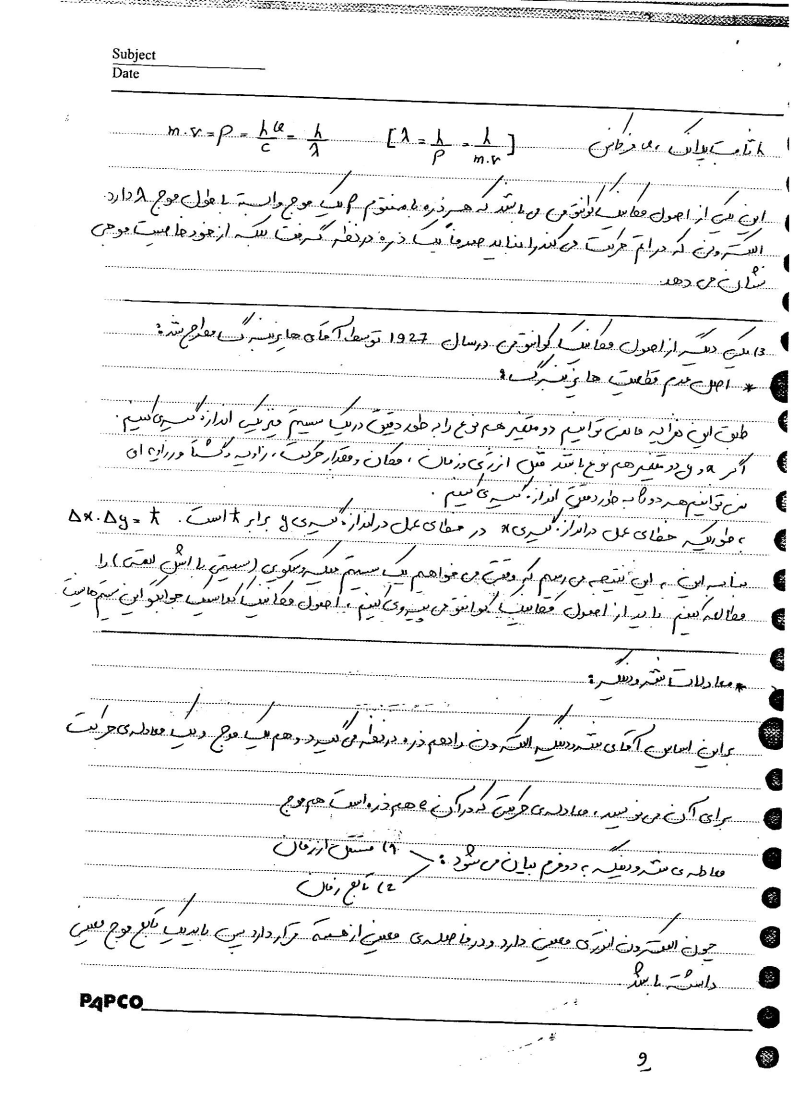 Subject
Date
m.v = P = hυ/c = h/λ [λ = h/P = h/m.v] h ثابت پلانک ، υ فرکانس
این یکی از اصول مکانیک کوانتومی می باشد که هر ذره با منتوم P یک موج وابسته با طول موج λ دارد.
الکترون که در اتم حرکت می کند را نباید صرفاً یک ذره در نظر گرفت بلکه از خود خاصیت موجی
نشان می دهد.
3) یکی دیگر از اصول مکانیک کوانتومی در سال 1927 توسط آقای هایزنبرگ مطرح شد:
* اصل عدم قطعیت هایزنبرگ:
طبق این نظریه ما نمی توانیم دو متغیر هم نوع را به طور دقیق در یک سیستم فیزیکی اندازه گیری کنیم.
اگر x و y دو متغیر هم نوع باشد مثل انرژی و زمان ، مکان و مقدار حرکت ، زاویه و گشتاور زاویه ای
نمی توانیم هر دو را به طور دقیق اندازه گیری کنیم.
به طوریکه خطای عمل در اندازه گیری x در خطای عمل در اندازه گیری y برابر ħ است. Δx.Δy = ħ
بنابراین به این نتیجه می رسیم که وقتی می خواهیم یک سیستم میکروسکوپی (سیستمی با اتمی) را
مطالعه کنیم باید از اصول مکانیک کوانتومی پیروی کنیم ، اصول مکانیک کلاسیک جوابگو این سیستم ها نیست
* معادلات شرودینگر:
براین اساس آقای شرودینگر الکترون را هم ذره در نظر می گیرد و هم یک موج و یک معادله ی حرکت
برای آن می نویسد ، معادله ی حرکتی که در آن e هم ذره است هم موج
معادله ی شرودینگر به دو فرم بیان می شود :
1) مستقل از زمان
2) تابع زمان
چون الکترون انرژی معینی دارد و در فاصله ی معینی از هسته قرار دارد پس باید یک تابع موج معینی
داشته باشد.
PAPCO
9